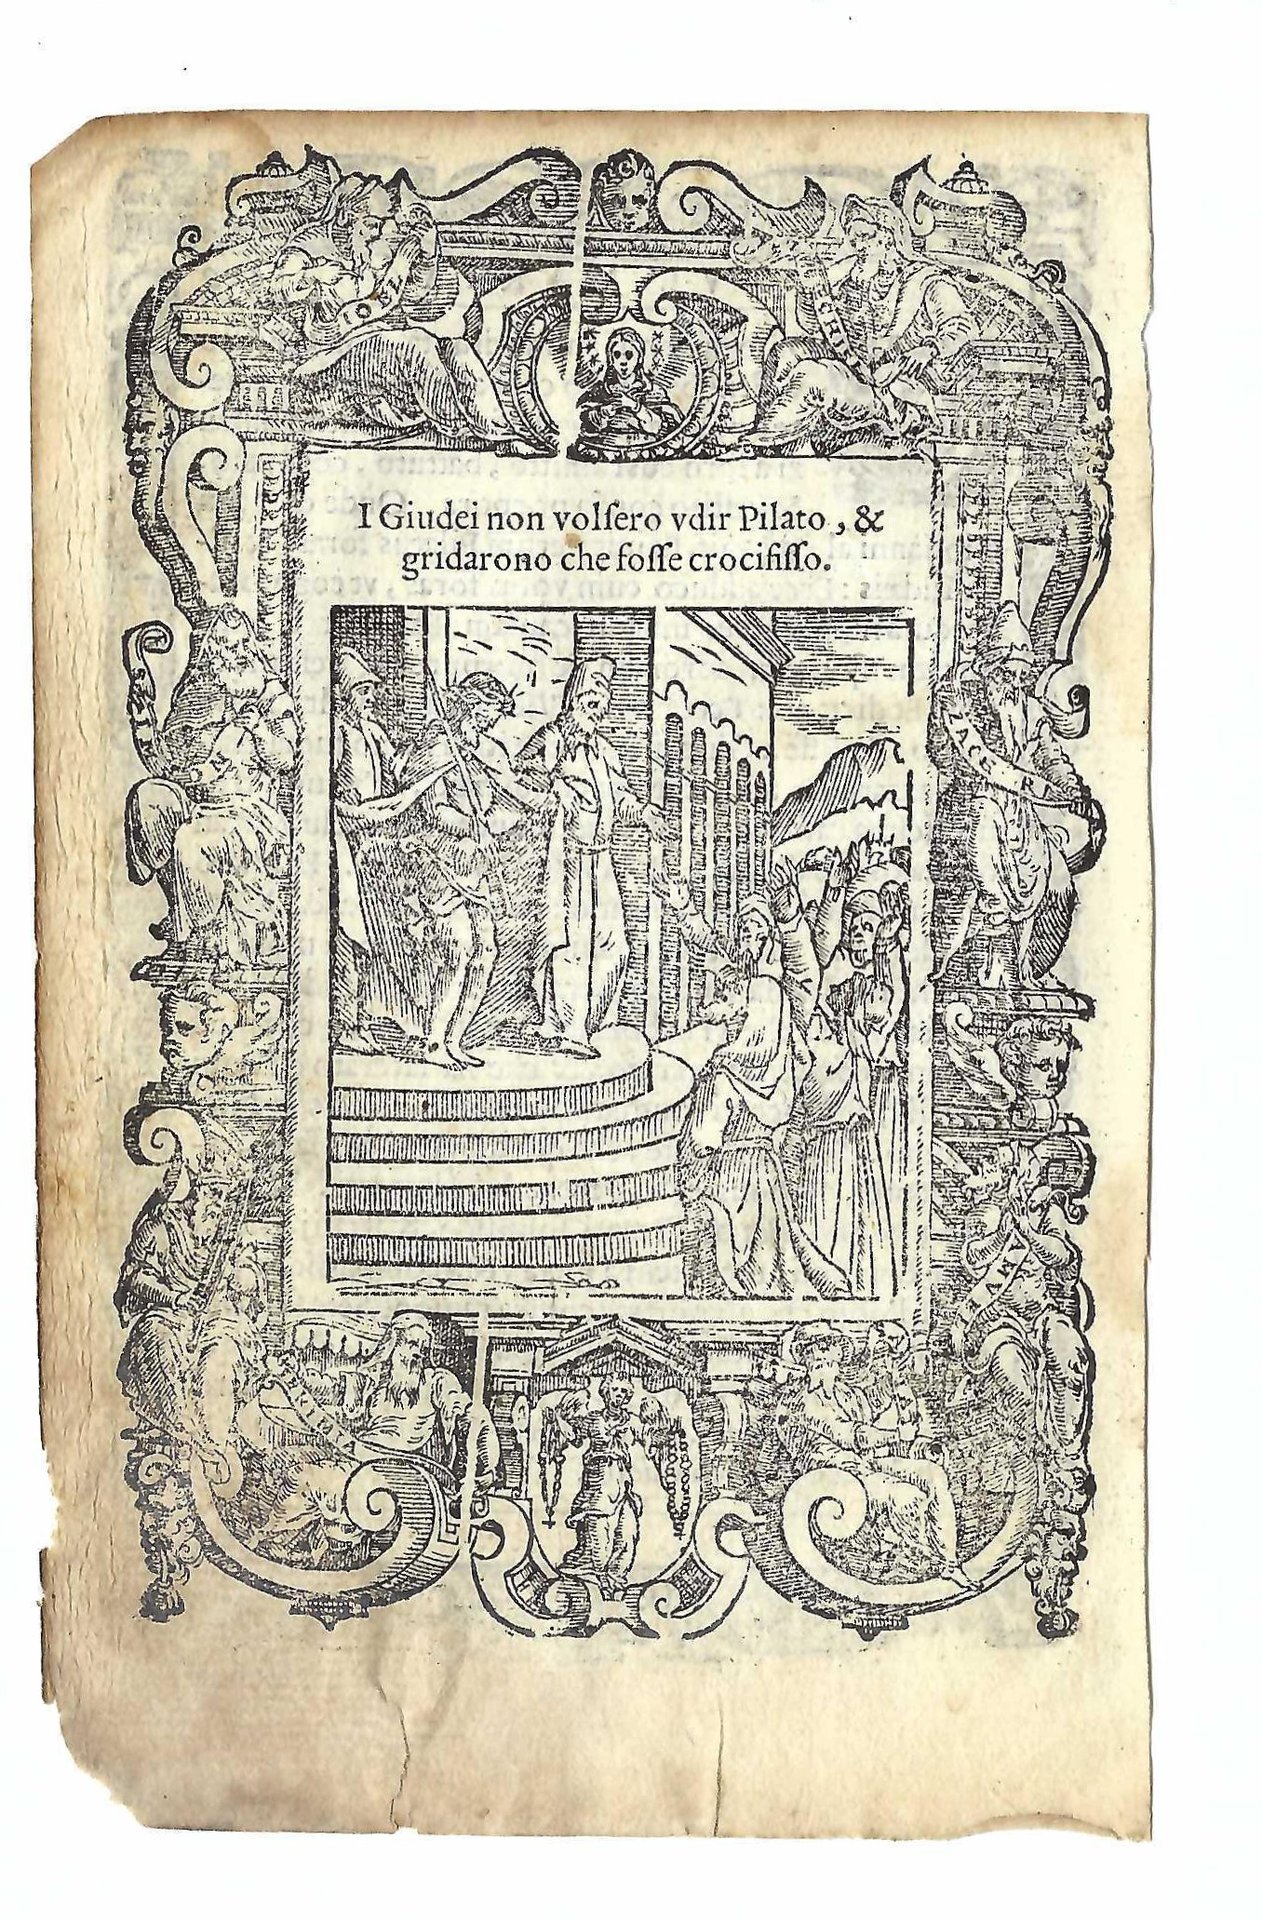 I Giudei non volſero vdir Pilato, &
gridarono che foſſe crocifiſſo.
IOEL